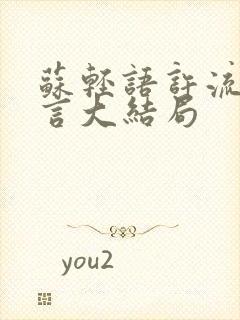 蘇輕語許流
言大結局
you2